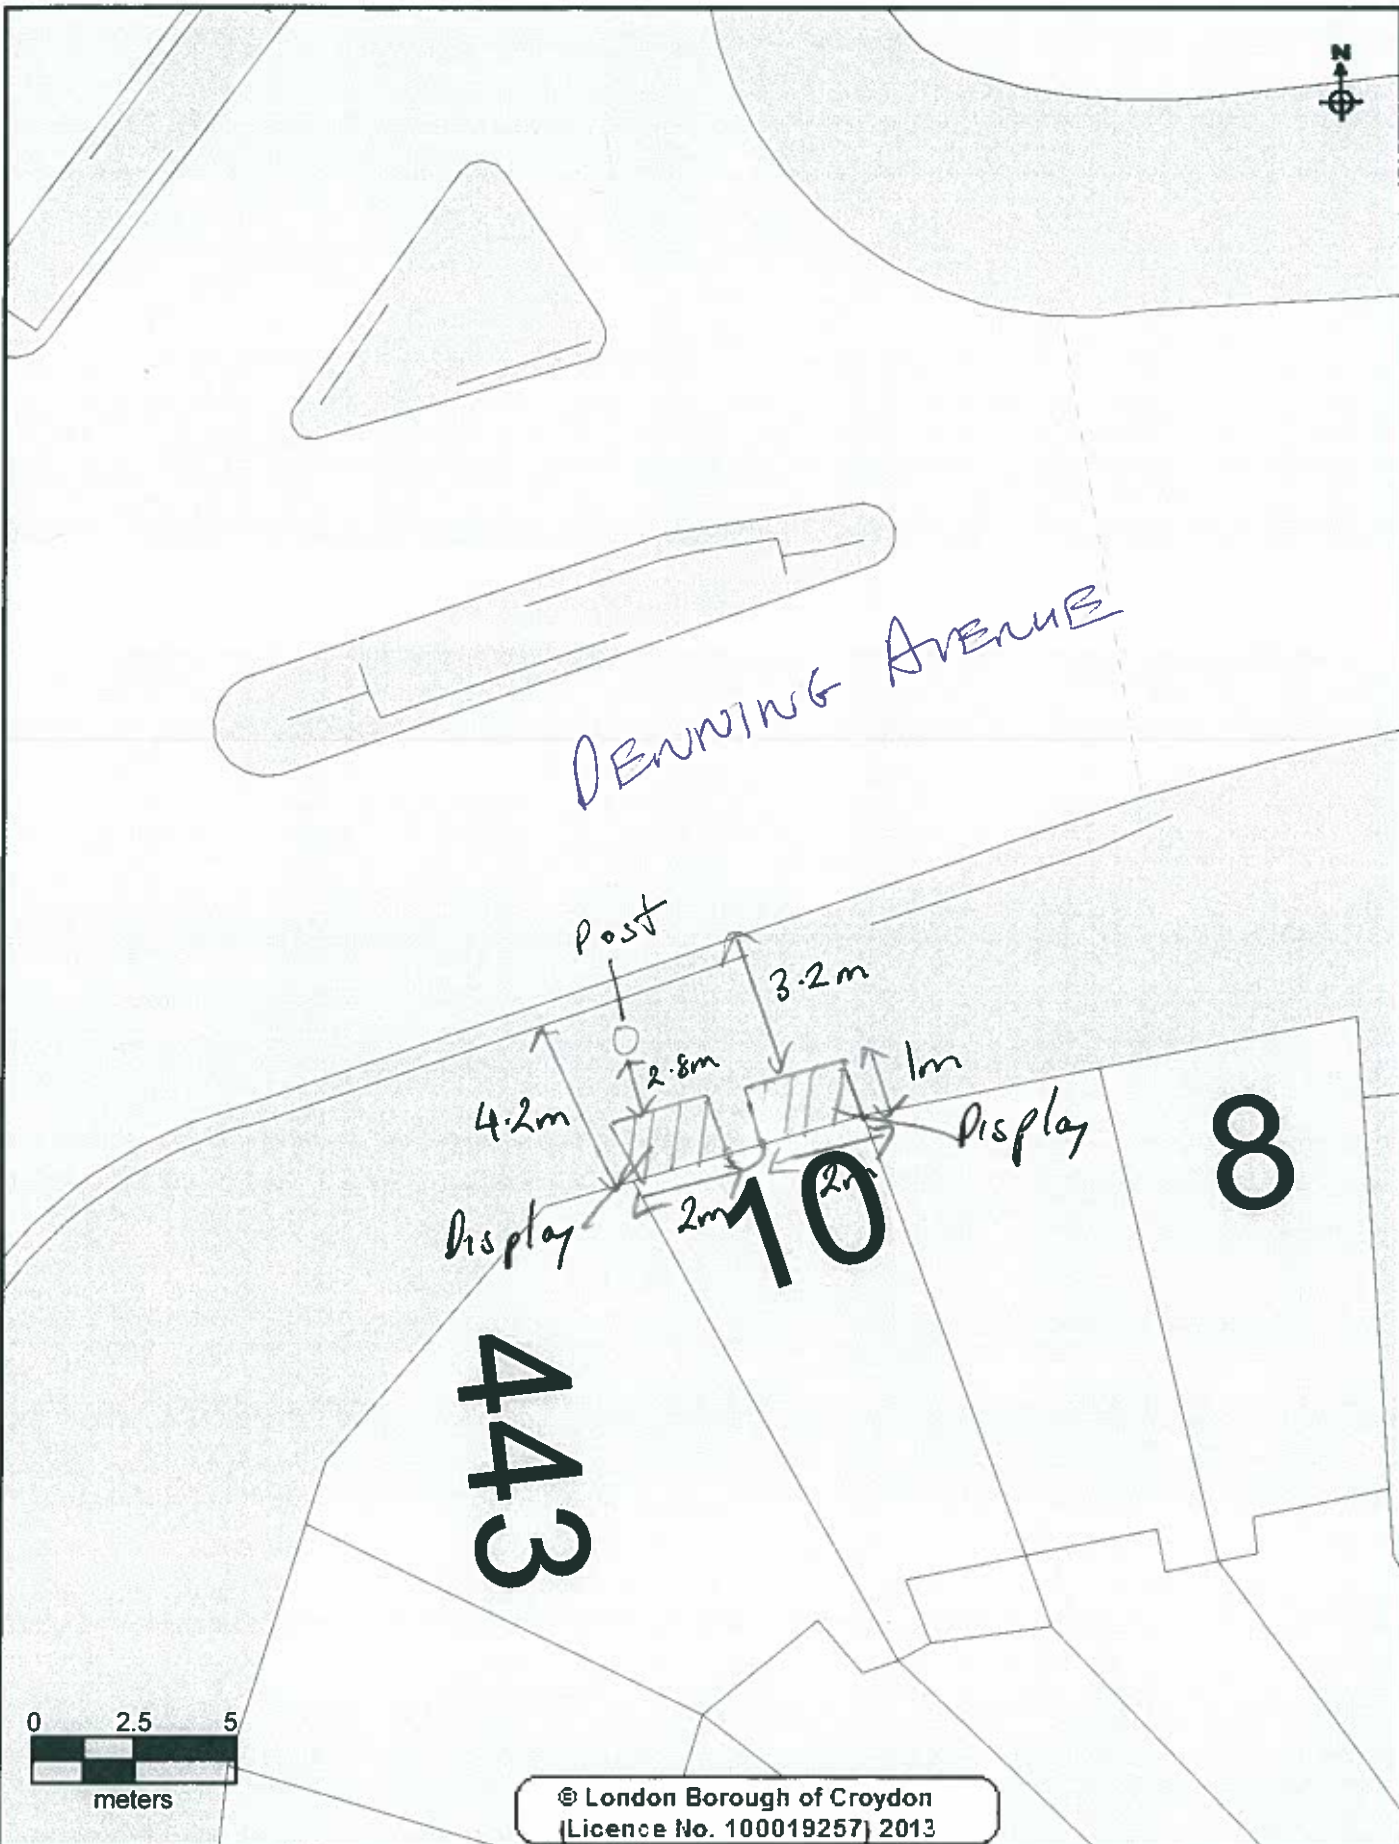 N
DENNING AVENUE
Post
3.2m
2.8m
1m
4.2m
Display
8
2m
10
2m
Display
443
0 2.5 5
meters
© London Borough of Croydon
(Licence No. 100019257) 2013